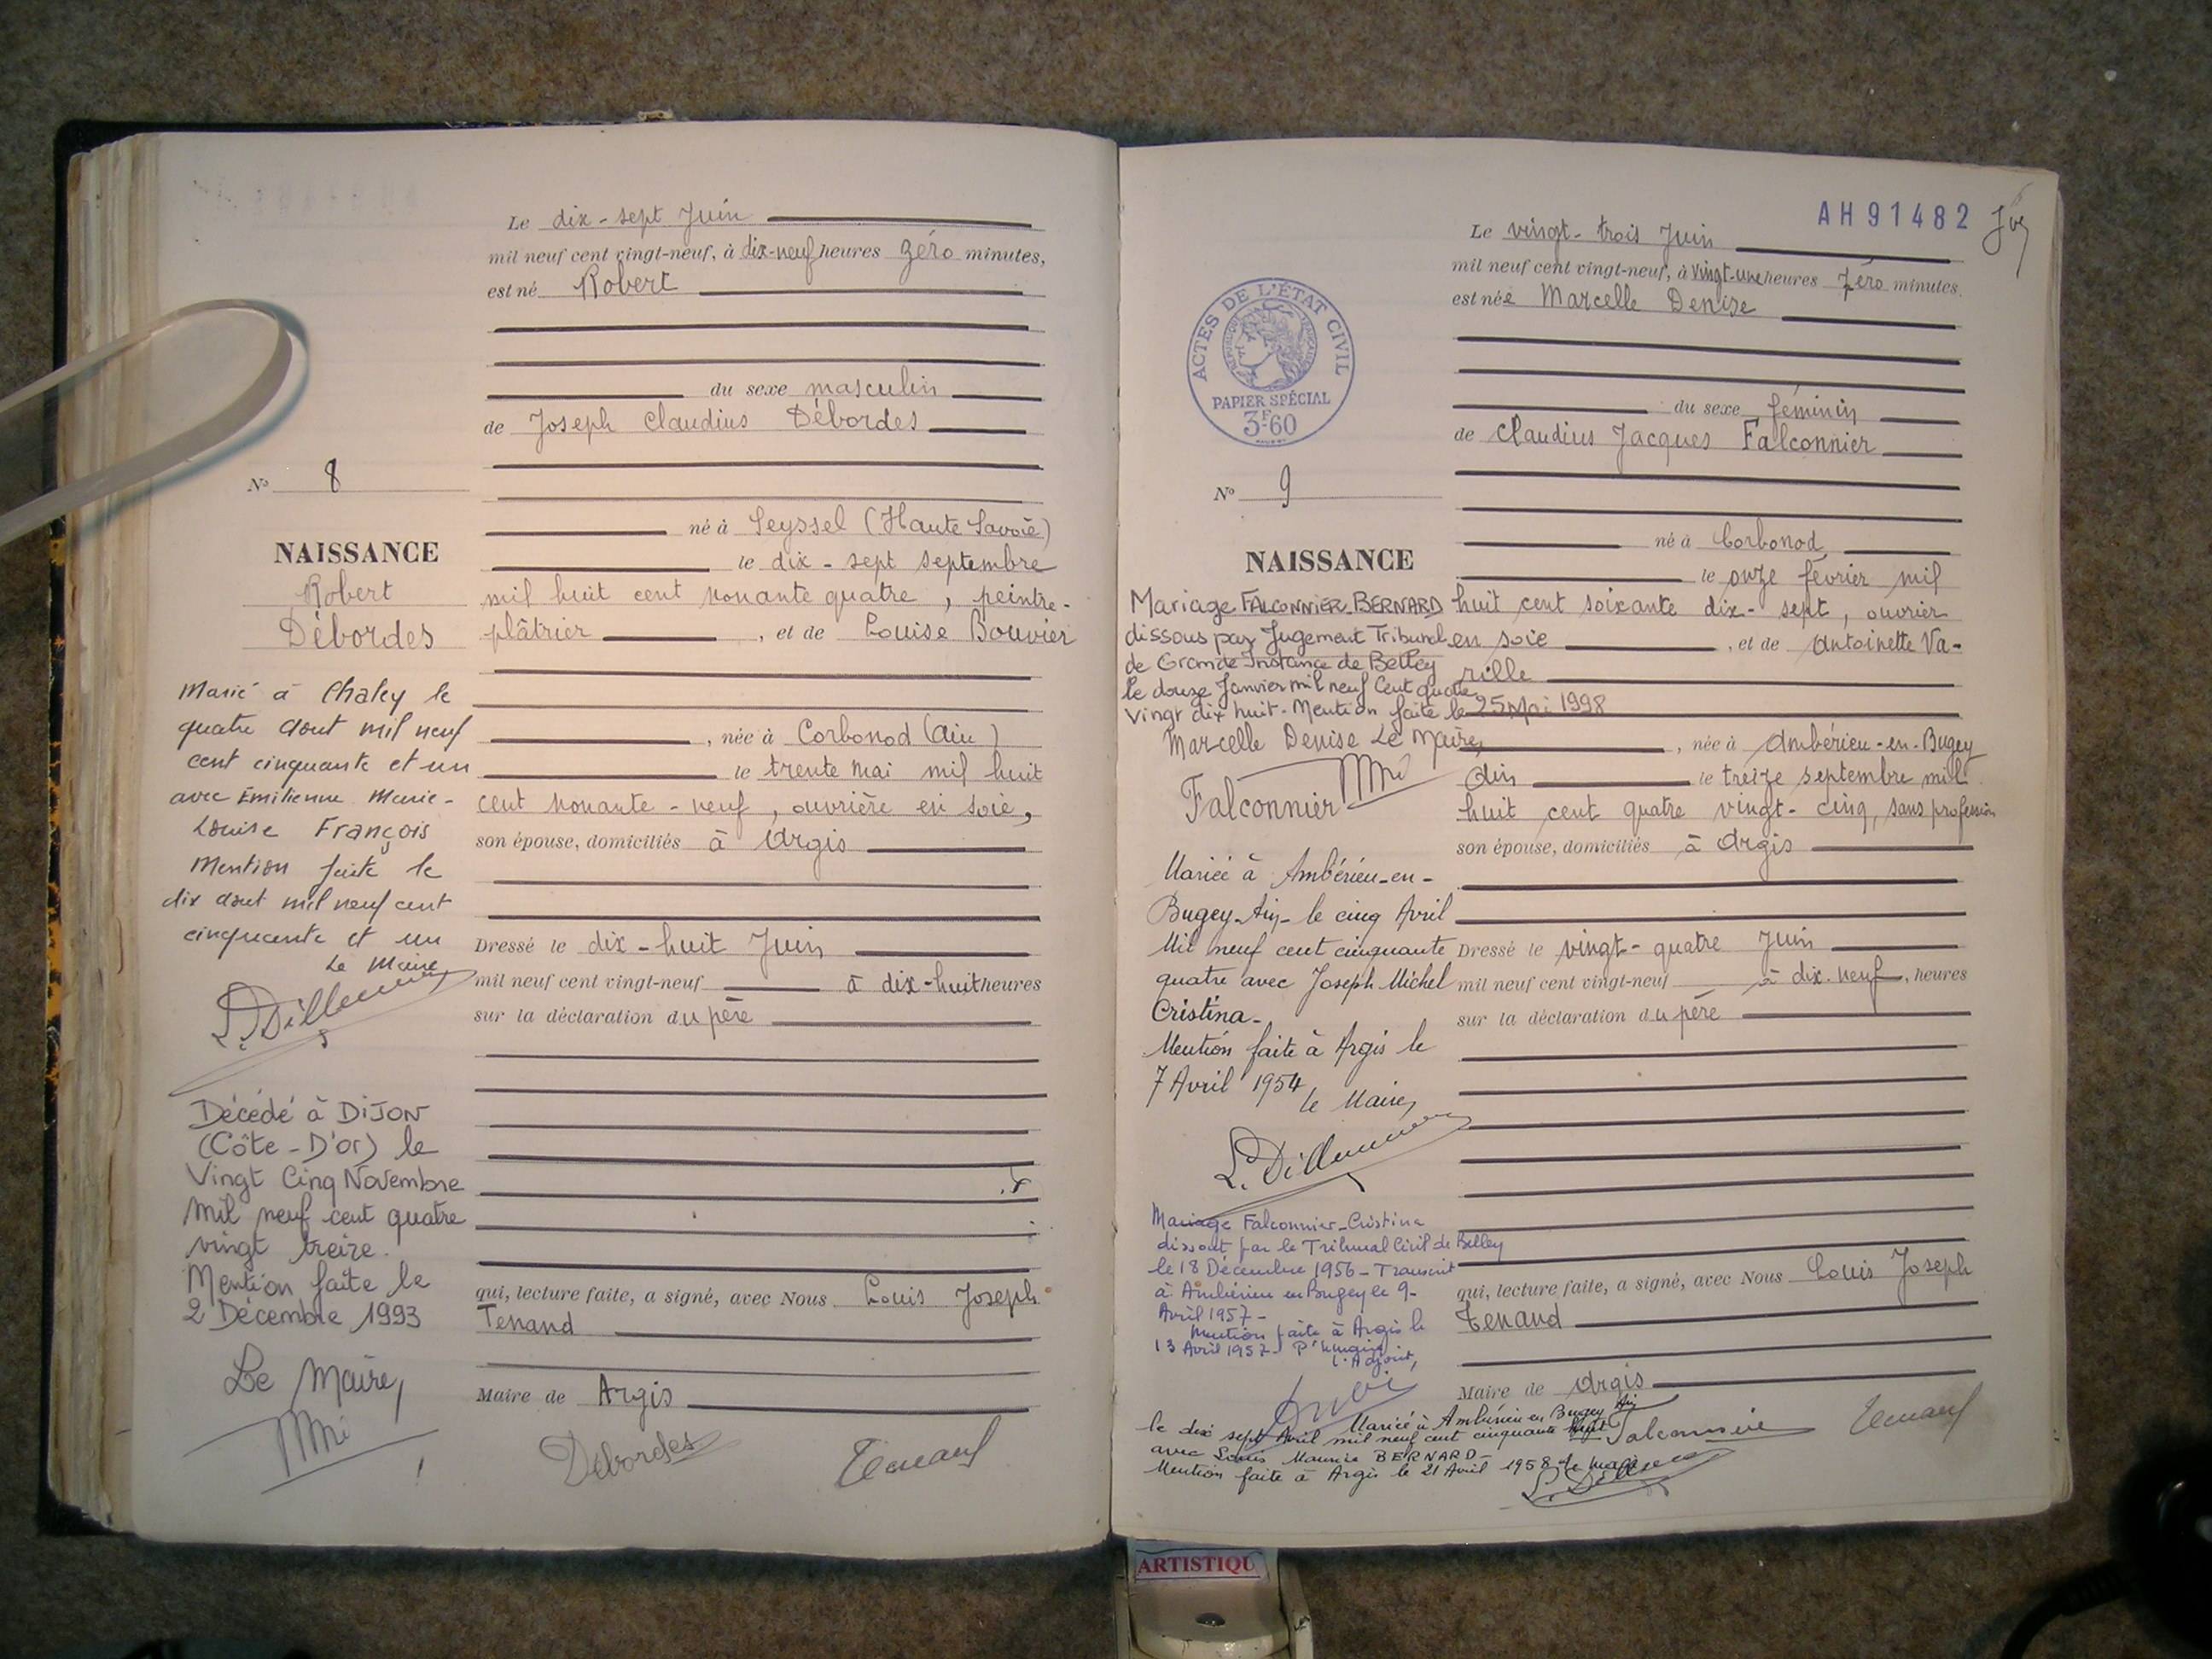 Le dix-sept Juin
mil neuf cent vingt-neuf, à dix-neuf heures zéro minutes,
est né Robert
du sexe masculin
de Joseph Claudius Débordes
né à Seyssel (Haute Savoie)
le dix-sept septembre
mil huit cent nonante quatre, peintre-
plâtrier, et de Louise Bouvier
, née à Corbonod (Ain)
le trente mai mil huit
cent nonante-neuf, ouvrière en soie,
son épouse, domiciliés à Argis
Dressé le dix-huit Juin
mil neuf cent vingt-neuf à dix-huit heures
sur la déclaration du père
qui, lecture faite, a signé, avec Nous Louis Joseph
Tenand
Maire de Argis
Débordes Tenand
N° 8
NAISSANCE
Robert
Débordes
Marié à Chaley le
quatre août mil neuf
cent cinquante et un
avec Émilienne Marie-
Louise François
Mention faite le
dix août mil neuf cent
cinquante et un
Le Maire
Décédé à DIJON
(Côte-D'or) le
Vingt Cinq Novembre
mil neuf cent quatre
vingt treize.
Mention faite le
2 Décembre 1993
Le Maire,
AH91482
Le vingt-trois Juin
mil neuf cent vingt-neuf, à vingt-une heures zéro minutes,
est née Marcelle Denise
du sexe féminin
de Claudius Jacques Falconnier
né à Corbonod
le onze février mil
huit cent soixante dix-sept, ouvrier
en soie, et de Antoinette Va-
rille
, née à Ambérieu-en-Bugey
Ain le treize septembre mil
huit cent quatre vingt-cinq, sans profession
son épouse, domiciliés à Argis
Dressé le vingt-quatre Juin
mil neuf cent vingt-neuf à dix-neuf, heures
sur la déclaration du père
qui, lecture faite, a signé, avec Nous Louis Joseph
Tenand
Maire de Argis
Falconnier Tenand
ACTES DE L'ÉTAT CIVIL
RÉPUBLIQUE FRANÇAISE
PAPIER SPÉCIAL
3F60
N° 9
NAISSANCE
Mariage FALCONNIER-BERNARD
dissous par Jugement Tribunal
de Grande Instance de Belley
le douze Janvier mil neuf Cent quatre
Vingt dix huit. Mention faite le 25 Mai 1998
Marcelle Denise Le Maire,
Falconnier
Mariée à Ambérieu-en-
Bugey-Ain- le cinq Avril
Mil neuf cent cinquante
quatre avec Joseph Michel
Cristina-
Mention faite à Argis le
7 Avril 1954
Le Maire,
Mariage Falconnier-Cristina
dissout par le Tribunal Civil de Belley
le 18 Décembre 1956- Transcrit
à Ambérieu en Bugey le 9-
Avril 1957-
Mention faite à Argis le
13 Avril 1957
L'Adjoint,
Mariée à Ambérieu en Bugey Ain
le dix sept Avril mil neuf cent cinquante huit
avec Louis Maurice BERNARD-
Mention faite à Argis le 21 Avril 1958 Le Maire
ARTISTIQU